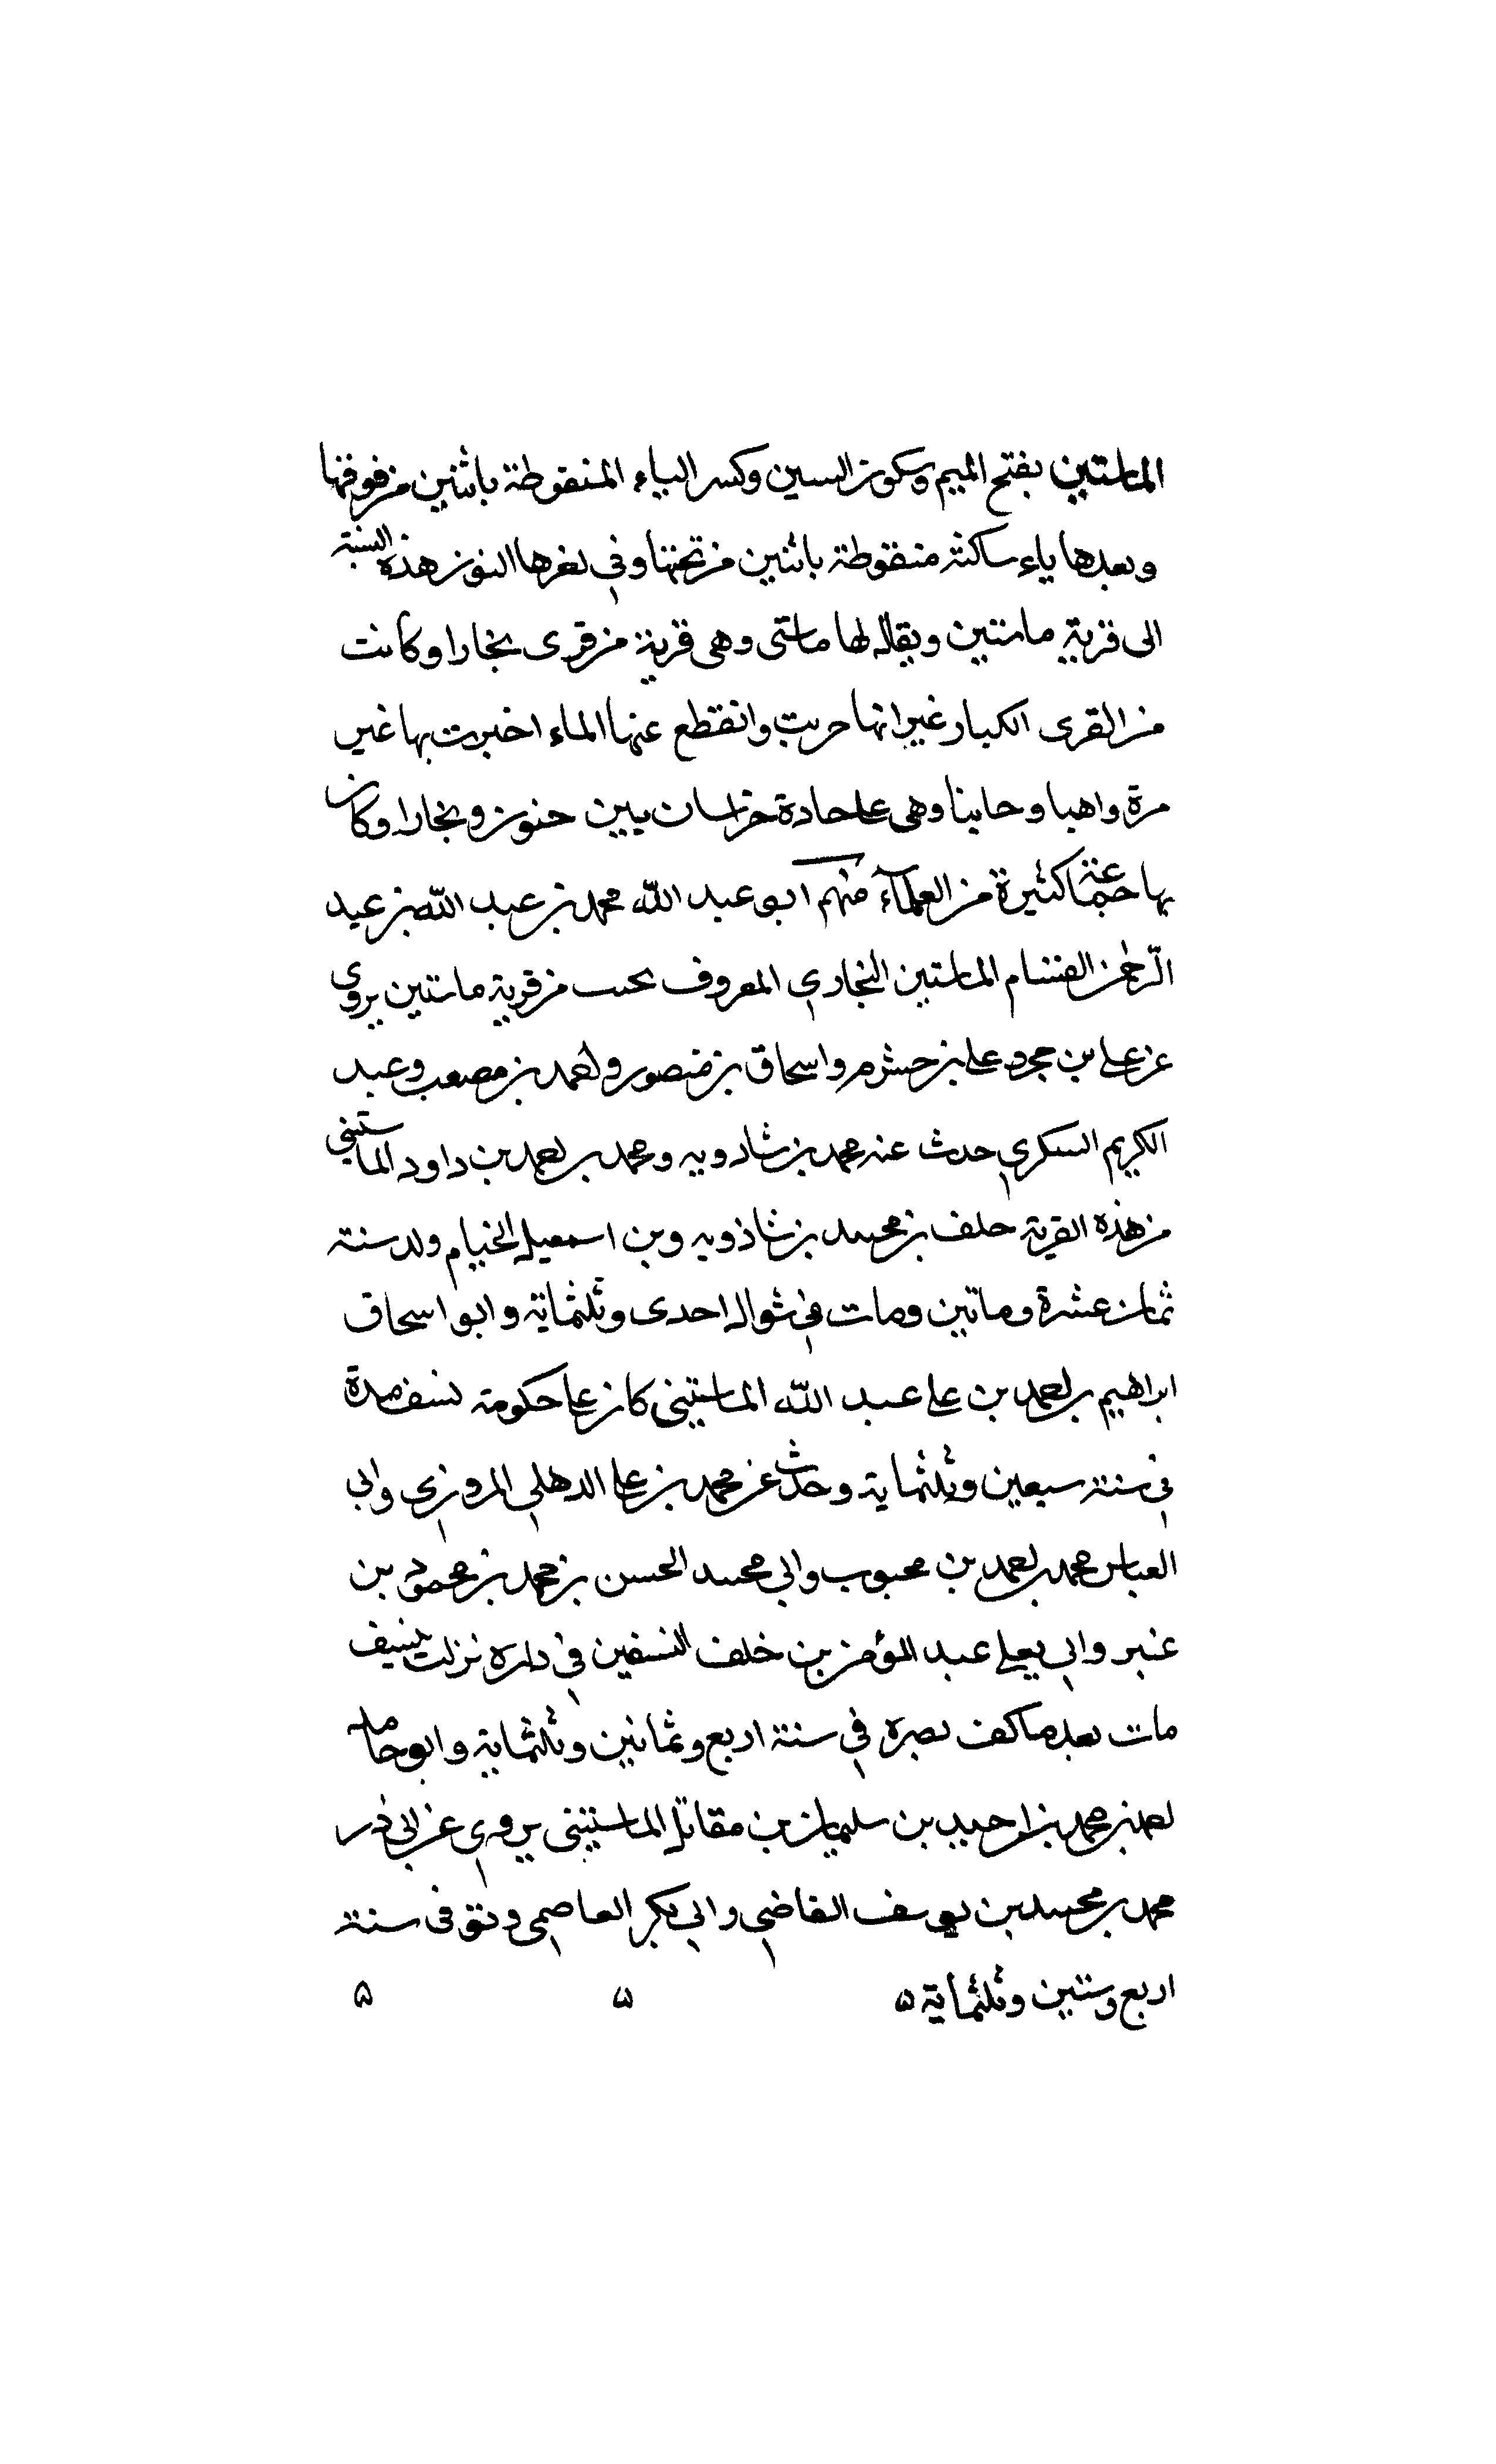 الماستين بفتح الميم وسكون السين وكسر التاء المنقوطة باثنين من فوقها
وبعدها ياء ساكنة منقوطة باثنين من تحتها وفي اخرها النون هذه النسبة
الى قرية ماستين ويقال لها ماستى وهى قرية من قرى بخارا وكانت
من القرى الكبار غير انها خربت وانقطع عنها الماء اخبرت بها غير
مرة ذاهبا وجاينا وهى على جادة خراسان بين خنون وبخارا وكان
بها جماعة كثيرة من العلماء منهم ابو عبد الله محمد بن عبد الله بن عبد
الرحمن القسام الماستين البخاري المعروف بحب من قرية ماستين يروى
عن على بن حجر وعلى بن خشرم واسحاق بن منصور واحمد بن مصعب وعبد
الكريم السكري حدث عنه محمد بن شاذويه ومحمد بن احمد بن داود الماستيني
من هذه القرية خلف بن محمد بن شاذويه وبن اسمعيل الخيام ولد سنة
ثمان عشرة وماتين ومات في شوال احدى وثلثماية وابو اسحاق
ابراهيم بن احمد بن على عبد الله الماستيني كان على حكومة نسف مدة
في سنة سبعين وثلثماية وحدث عن محمد بن على الدهلي المروزي وابي
العباس محمد بن احمد بن محبوب وابي محمد الحسن بن محمد بن محمود بن
عنبر وابي يعلى عبد المؤمن بن خلف النسفين في داره نزلت بنسف
مات بعد ما كف بصره في سنة اربع وثمانين وثلثماية وابو حامد
احمد بن محمد بن احيد بن سليمان بن مقاتل الماستيني يروي عن ابي ذر
محمد بن محمد بن يوسف القاضي وابي بكر العاصمي وتوفى سنة
اربع وستين وثلثماية ۵ ۵ ۵